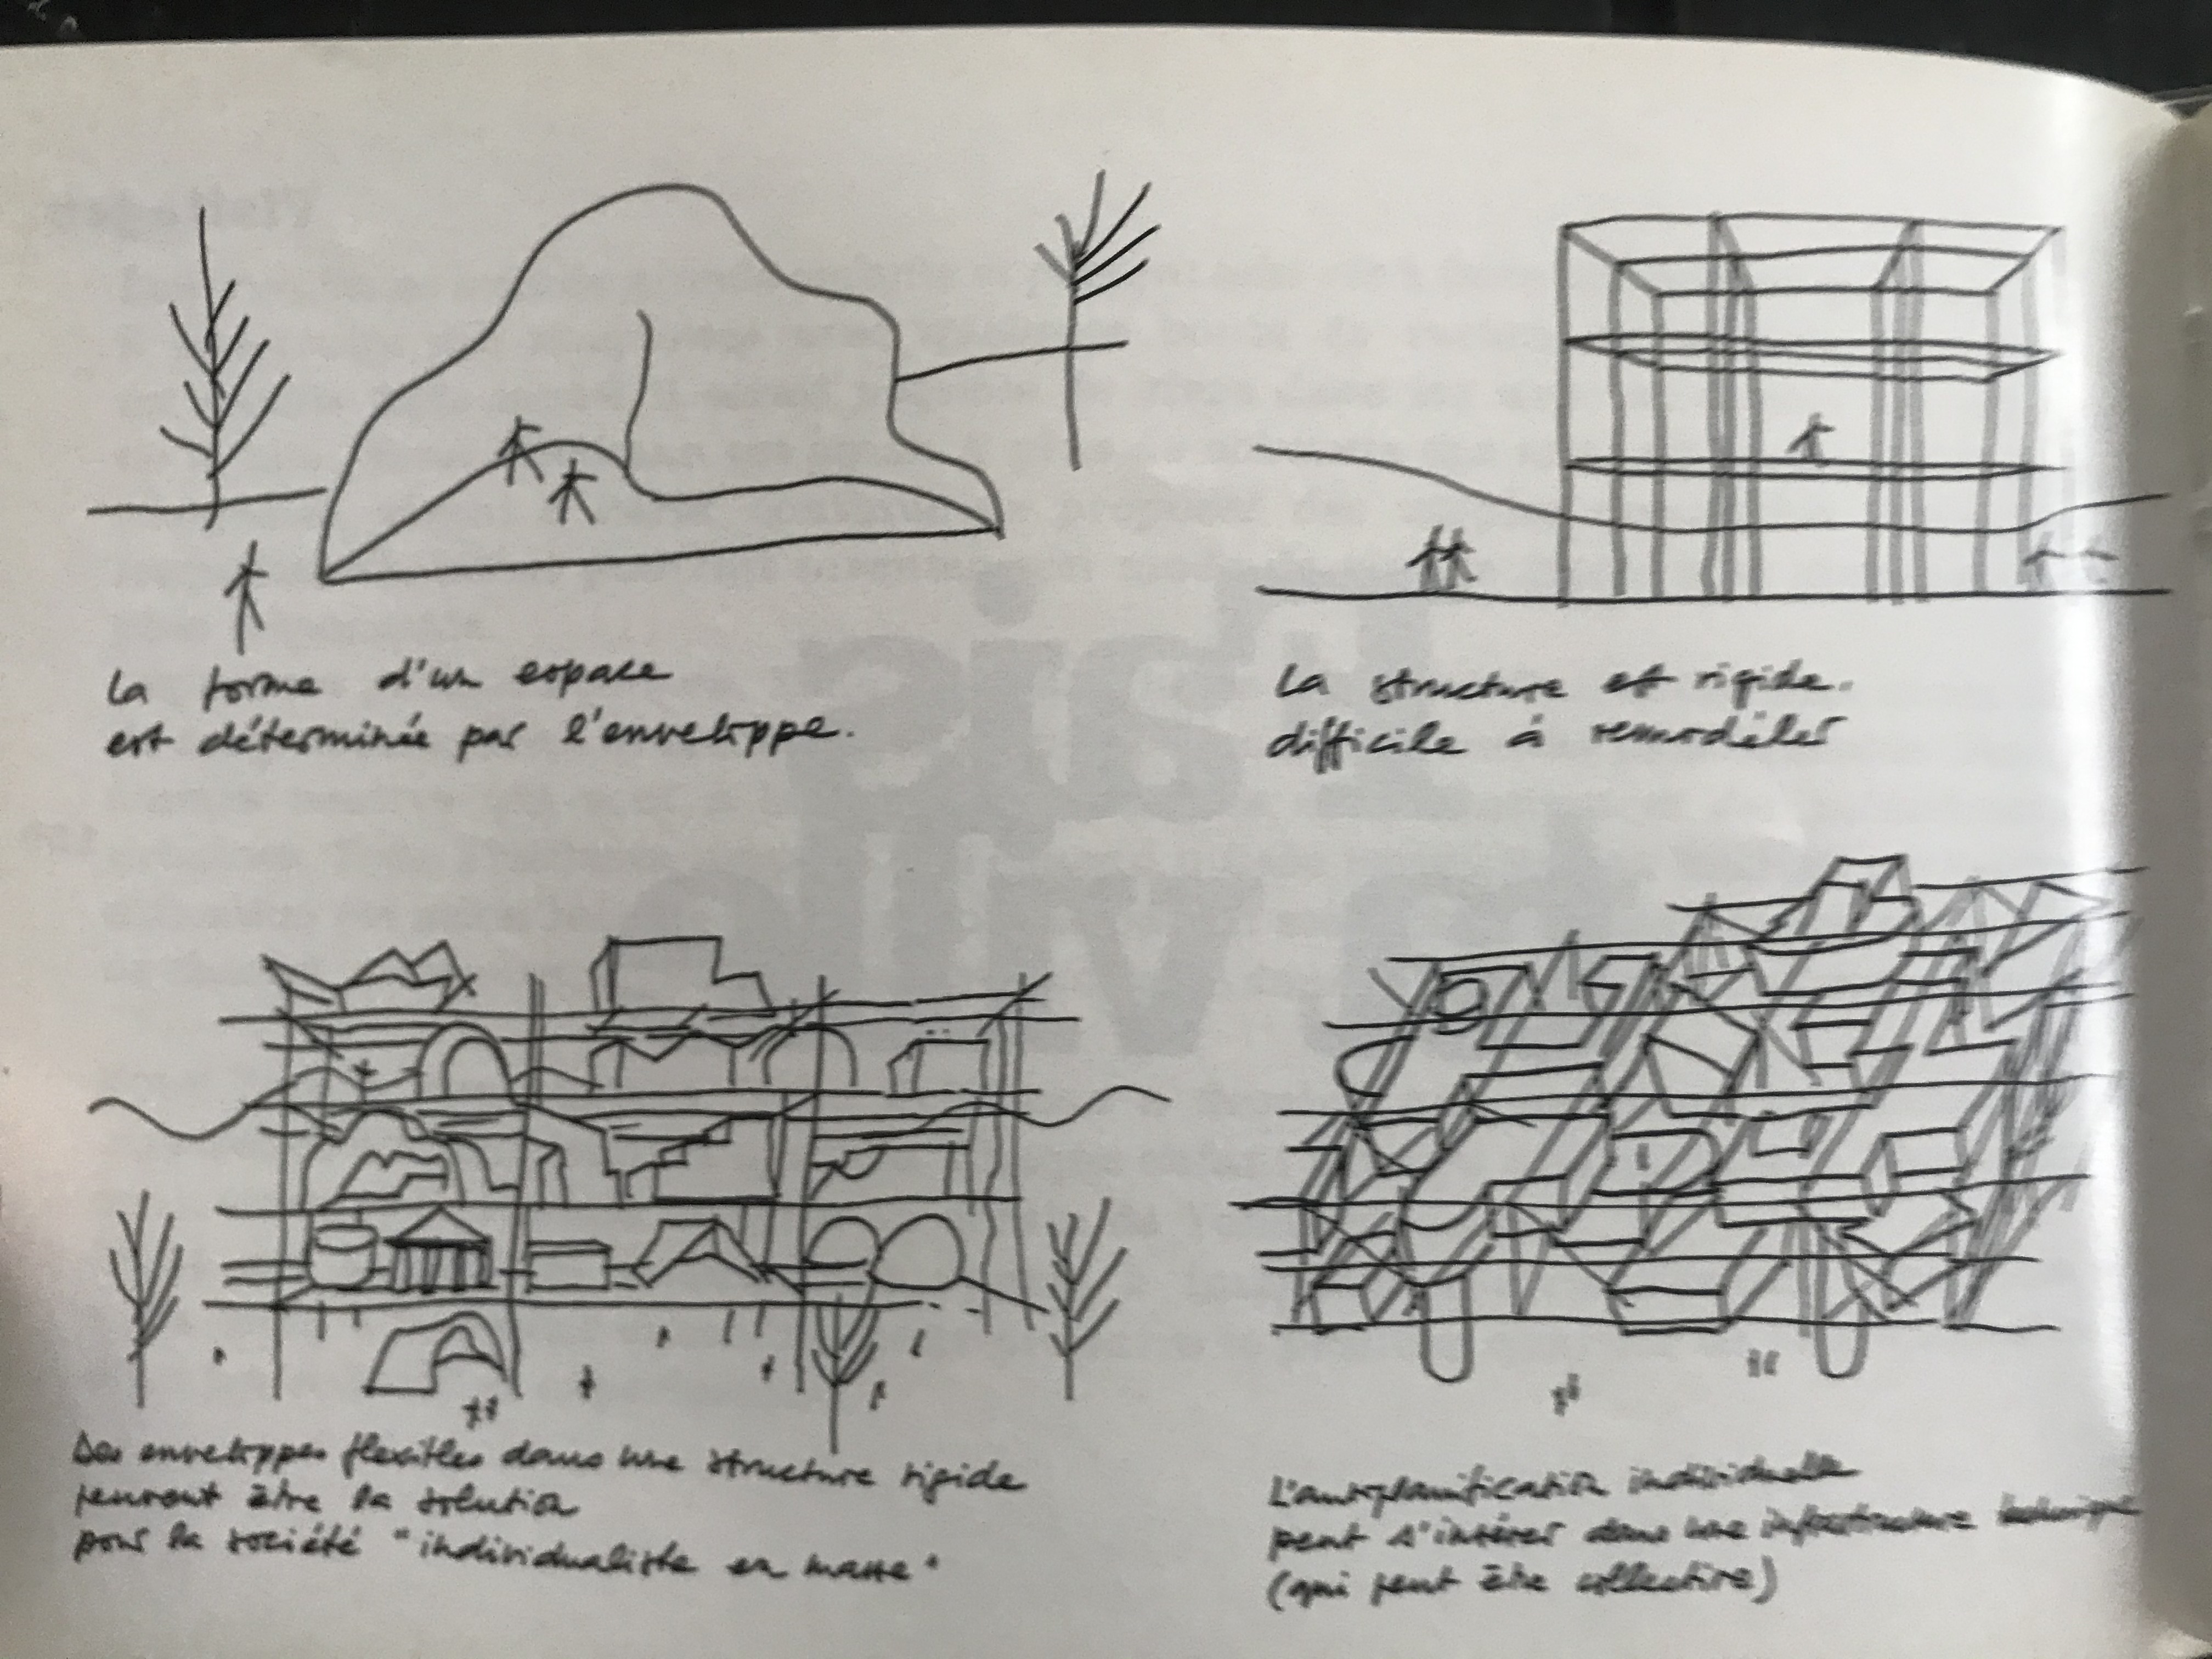 La forme d'un espace
est déterminée par l'enveloppe.
La structure est rigide.
difficile à remodéler
Des enveloppes flexibles dans une structure rigide
peuvent être la solution
pour la société "individualiste en masse"
L'autoplanification individuelle
peut s'intérer dans une infrastructure technique
(qui peut être collective)